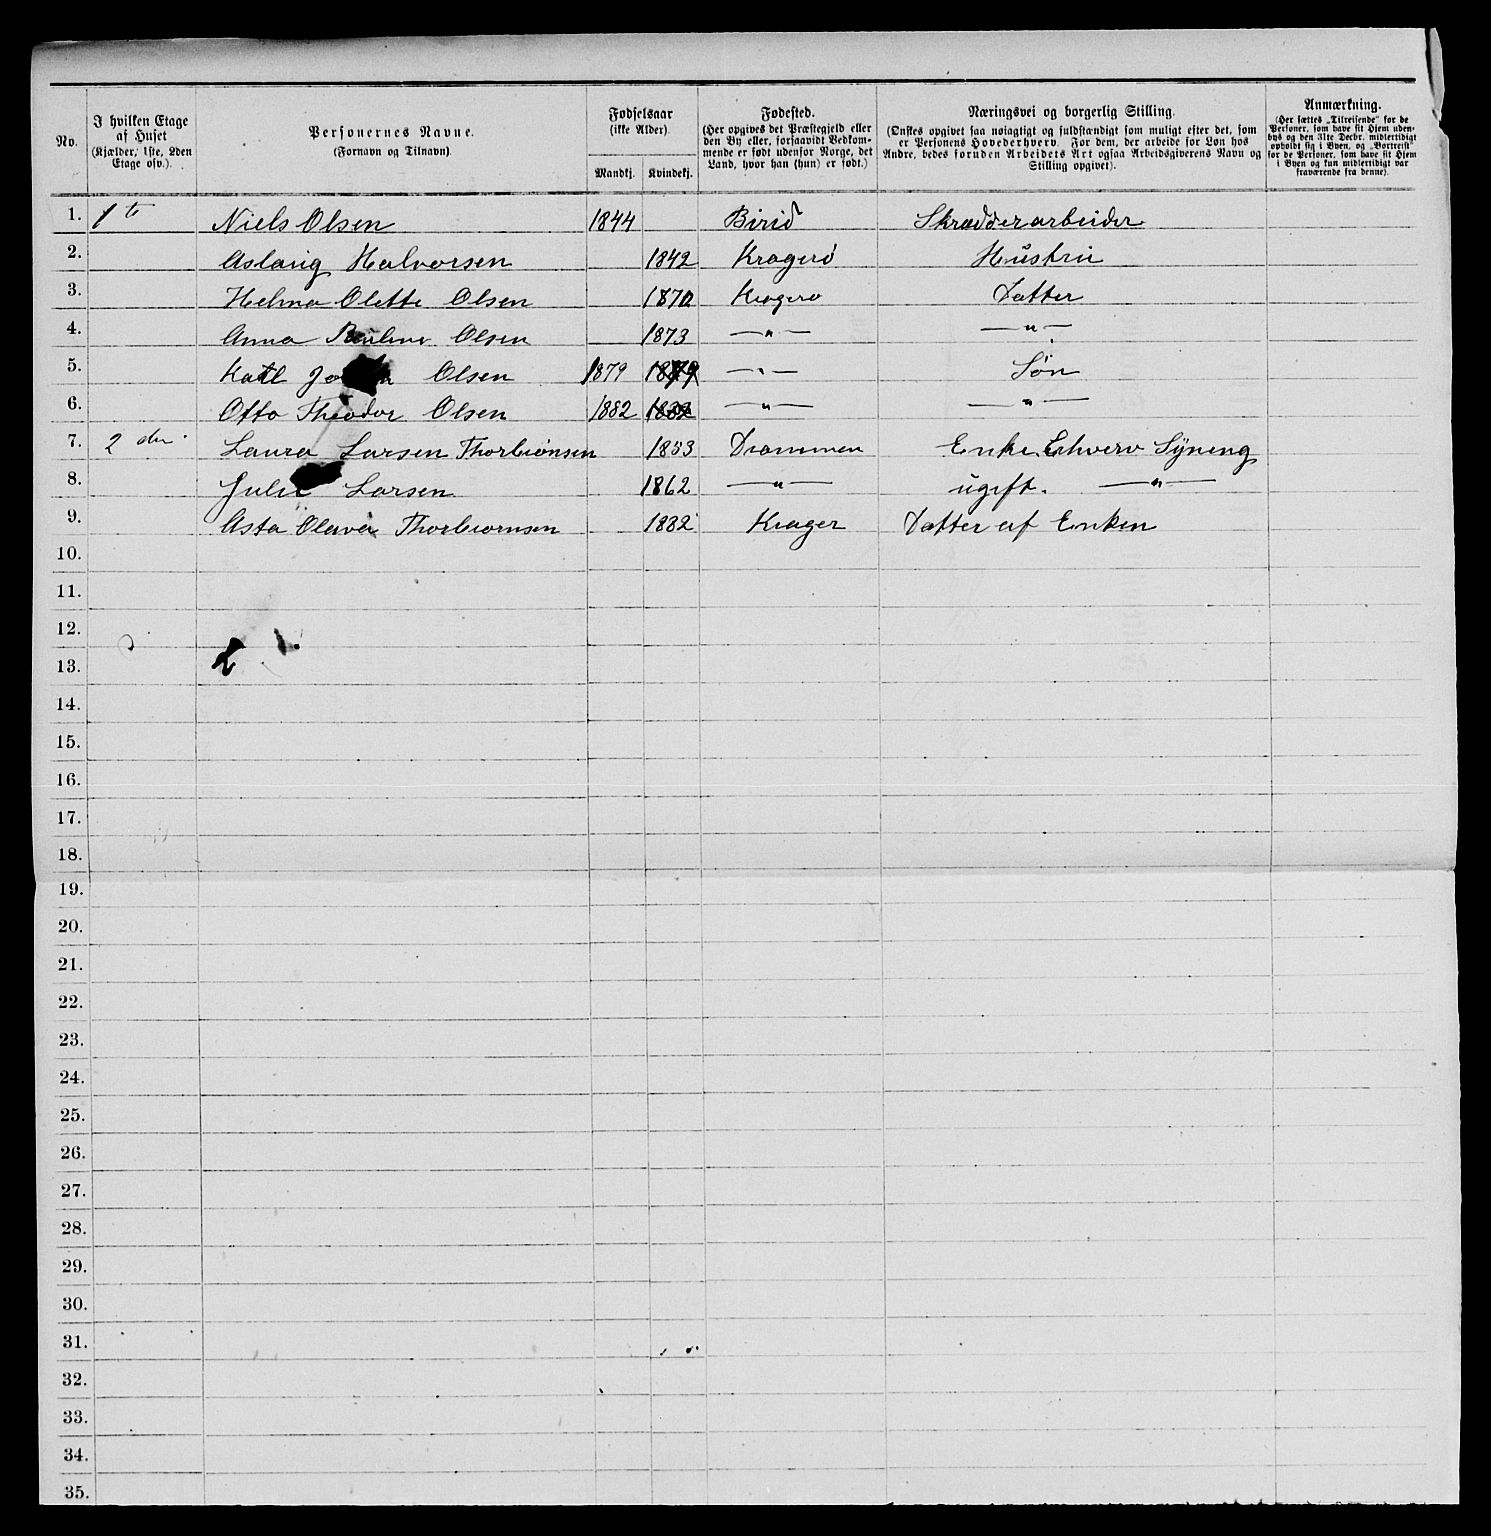 No.
I hvilken Etage
af Huset
(Kjælder, 1ste, 2den
Etage osv.).
Personernes Navne.
(Fornavn og Tilnavn).
Fødselsaar
(ikke Alder).
Mandkj. Kvindekj.
Fødested.
(Her opgives det Præstegjeld eller
den By eller, forsaavidt Vedkom-
mende er født udenfor Norge, det
Land, hvor han (hun) er født.)
Næringsvei og borgerlig Stilling.
(Ønskes opgivet saa nøiagtigt og fuldstændigt som muligt efter det, som
er Personens Hovederhverv. For dem, der arbeide for Løn hos
Andre, bedes foruden Arbeidets Art ogsaa Arbeidsgiverens Navn og
Stilling opgivet).
Anmærkning.
(Her sættes „Tilreisende“ for de
Personer, som have sit Hjem uden-
bys og den 31te Decbr. midlertidigt
opholdt sig i Byen, og „Bortreist“
for de Personer, som have sit Hjem
i Byen og kun midlertidigt var
fraværende fra denne).
1. 1te Niels Olsen 1844 Birid Skrædderarbeider
2. Aslaug Halvorsen 1842 Kragerö Hustru
3. Helma Olette Olsen 187 Kragerø Datter
4. Anna Olsen 1873 —"— —"—
5. Karl Olsen 1879 1879 —"— Søn
6. Otto Theodor Olsen 1882 1882 —"— —"—
7. 2den Laura Larsen Thorbiønsen 1853 Drammen Enke. Erhverv Syneng
8. Julie Larsen 1862 —"— ugift. —"—
9. Asta Olava Thorbiørnsen 1882 Krager Datter af Enken
10.
11.
12.
13.
14.
15.
16.
17.
18.
19.
20.
21.
22.
23.
24.
25.
26.
27.
28.
29.
30.
31.
32.
33.
34.
35.